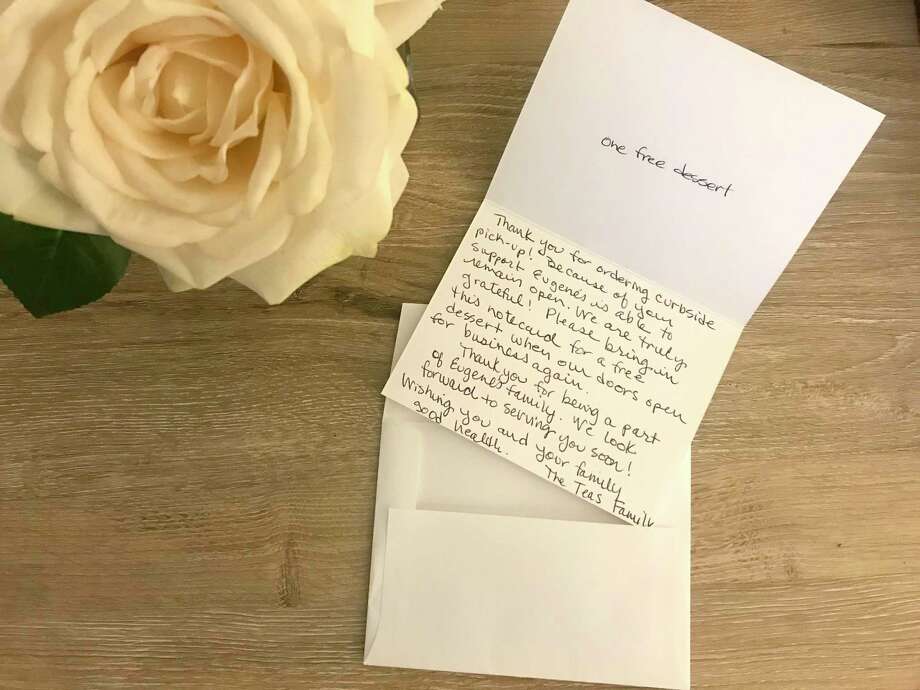 one free dessert
Thank you for ordering curbside
pick-up! Because of your
support Eugene's is able to
remain open. We are truly
grateful! Please bring in
this notecard for a free
dessert when our doors open
for business again.
Thank you for being a part
of Eugene's family. We look
forward to serving you soon!
Wishing you and your family
good health.
The Teas Family